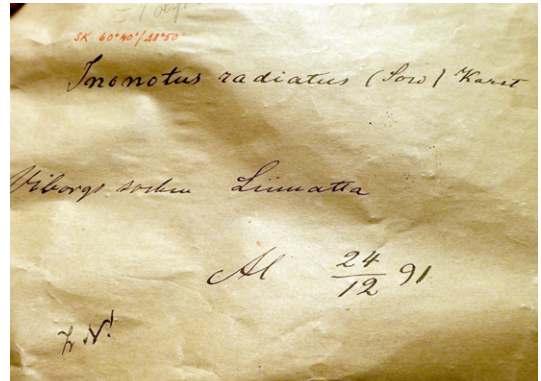 SK 60°40'/28°50'
Inonotus radiatus (Sow) Karst
Viborgs socken Liimatta
Al 24/12 91